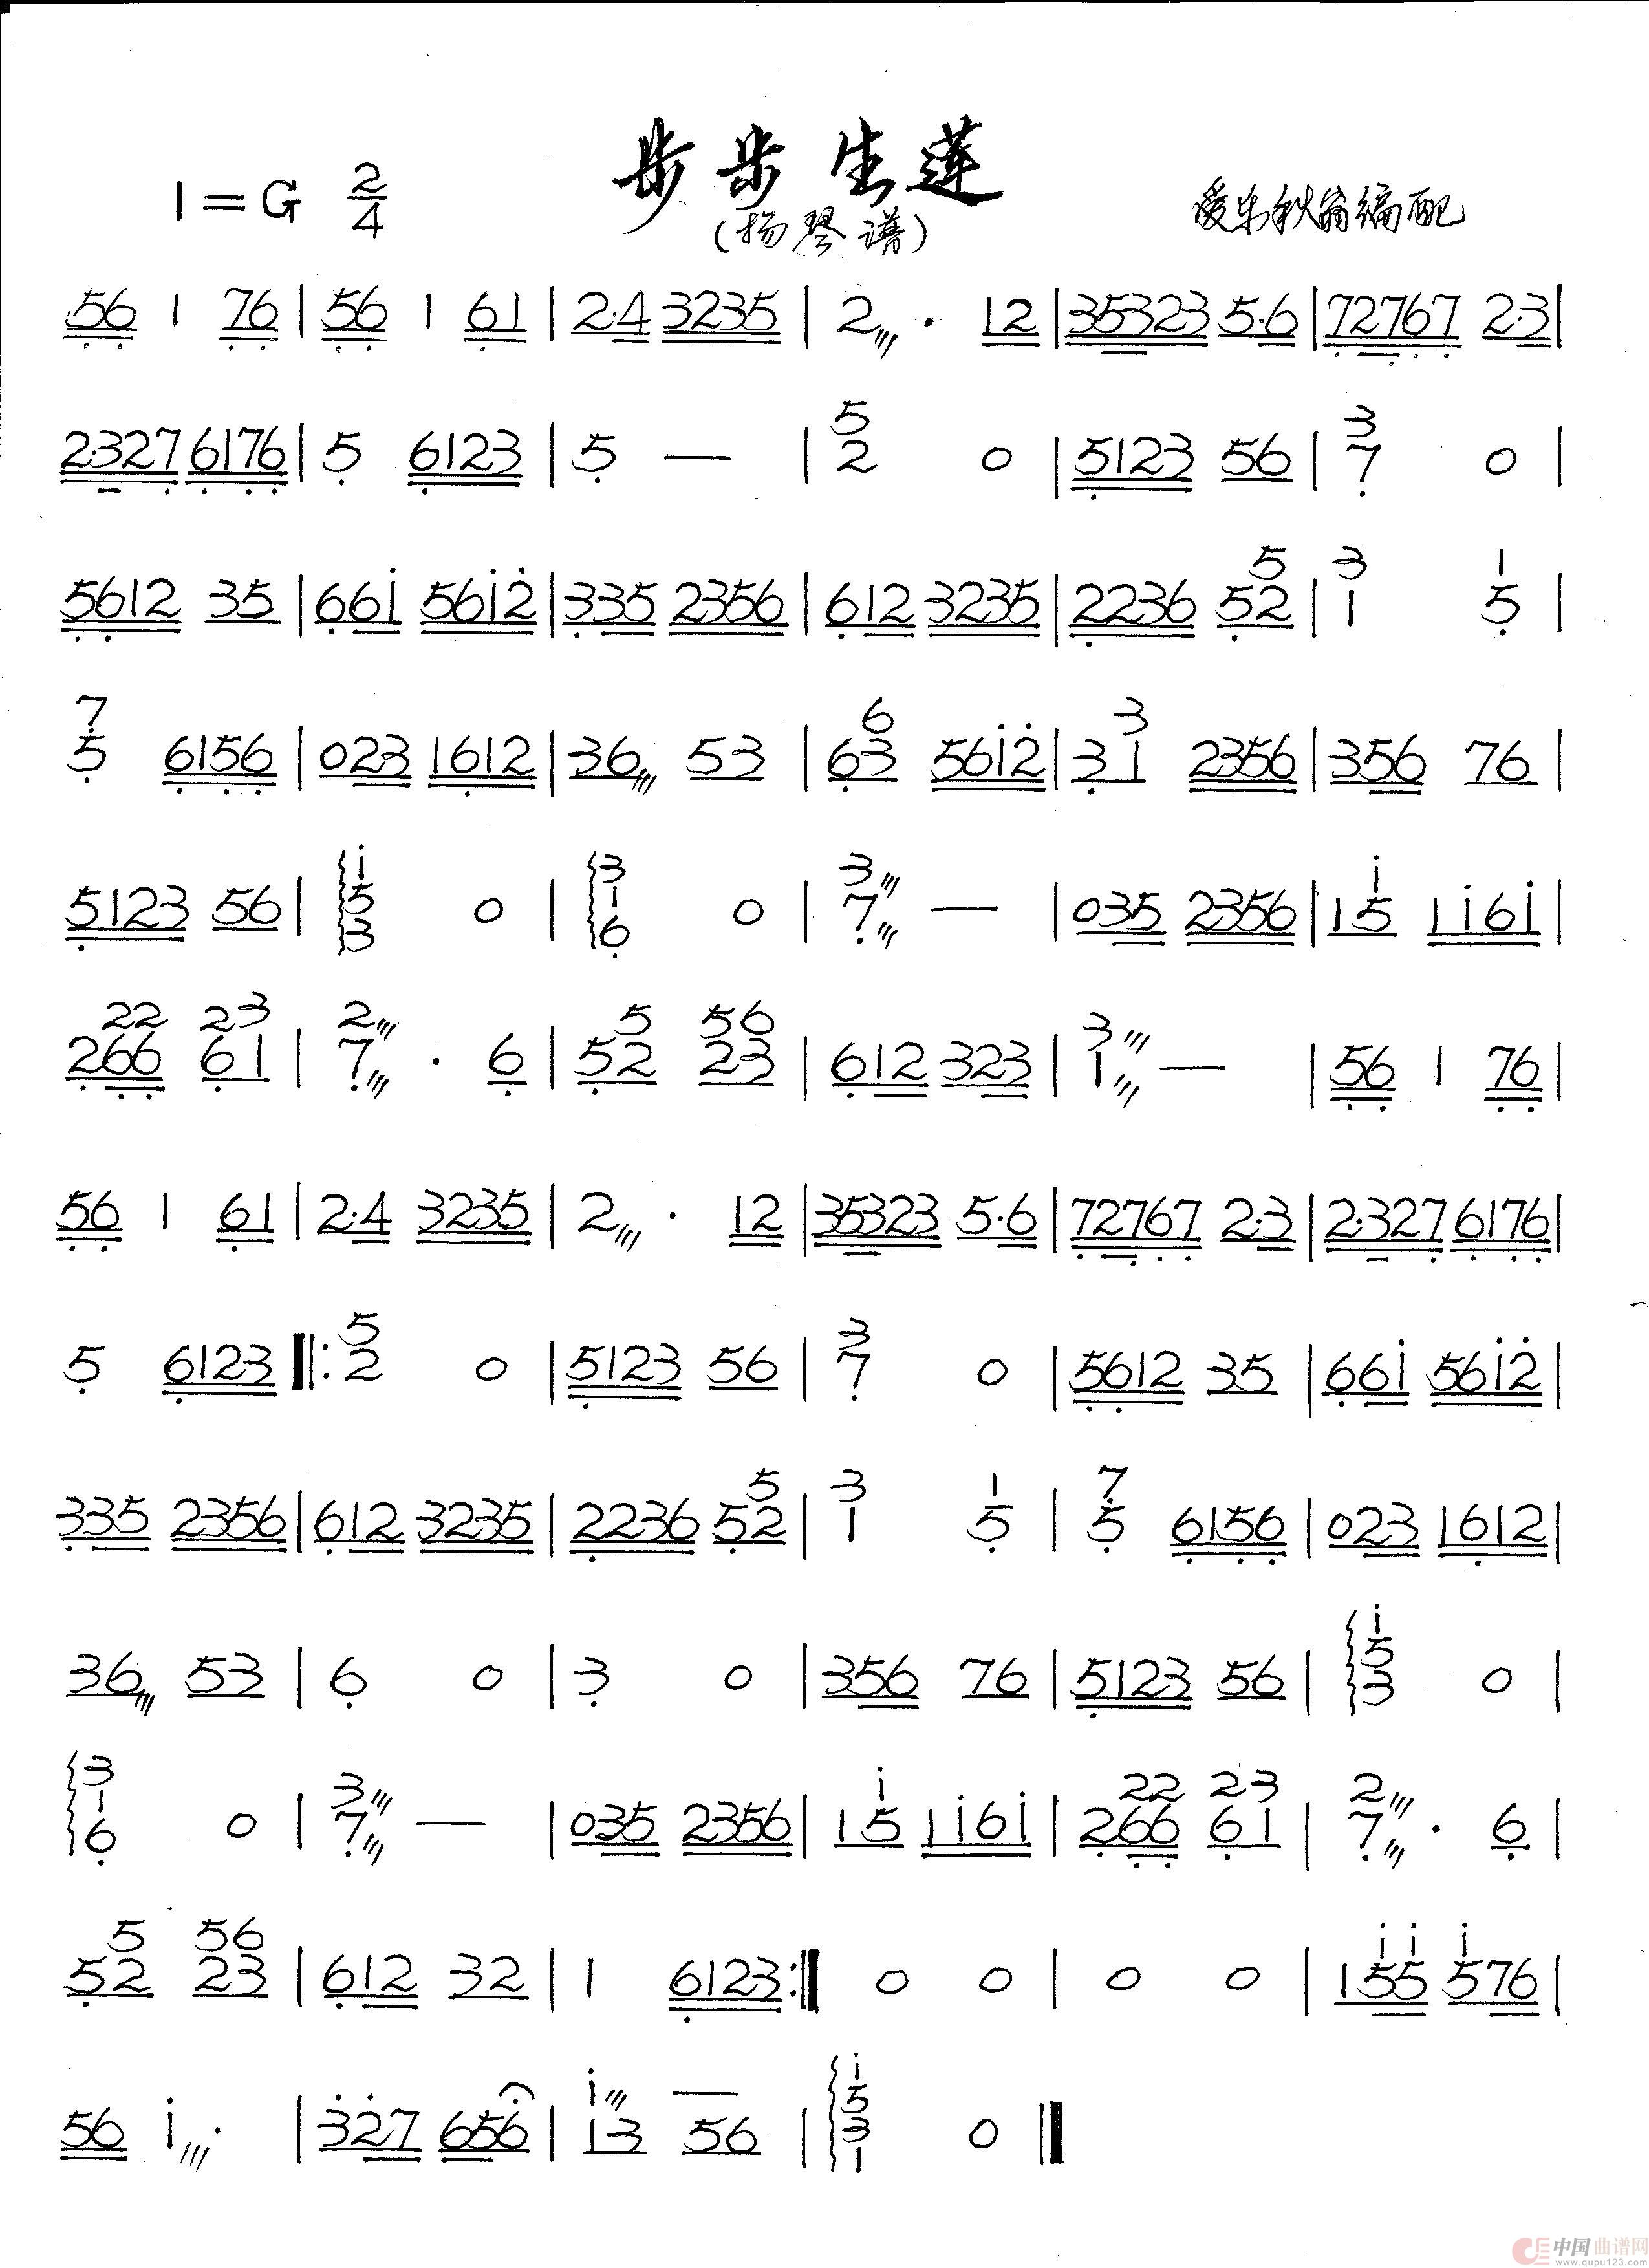 步步生莲
1=G 2/4
(扬琴谱)
爱乐秋翁编配
56 1 76 | 56 1 61 | 2·4 3235 | 2/// · 12 | 35323 5·6 | 72767 2·3 |
2·327 6176 | 5 6123 | 5 — | 5 2 0 | 5123 56 | 3 7 0 |
5612 35 | 66i 56i2̇ | 335 2356 | 612 3235 | 2236 52 5 | 3 1 1 5 |
7 5 6156 | 023 1612 | 36/// 53 | 63 6 56i2̇ | 31 3 2356 | 356 76 |
5123 56 | i 5 3 0 | 3 1 6 0 | 3/// 7/// — | 035 2356 | 15 i 1i6i |
22 266 23 61 | 2/// 7/// · 6 | 5 52 56 23 | 612 323 | 3/// 1/// — | 56 1 76 |
56 1 61 | 2·4 3235 | 2/// · 12 | 35323 5·6 | 72767 2·3 | 2·327 6176 |
5 6123 ‖: 5 2 0 | 5123 56 | 3 7 0 | 5612 35 | 66i 56i2̇ |
335 2356 | 612 3235 | 2236 52 5 | 3 1 1 5 | 7 5 6156 | 023 1612 |
36/// 53 | 6 0 | 3 0 | 356 76 | 5123 56 | i 5 3 0 |
3 1 6 0 | 3/// 7/// — | 035 2356 | 15 i 1i6i | 22 266 23 61 | 2/// 7/// · 6 |
5 52 56 23 | 612 32 | 1 6123 :‖ 0 0 | 0 0 | i i 155 i 576 |
56 i/// · | 3̇2̇7 656 | i/// — 13 56 | i 5 3 1 0 ‖
中国曲谱网
www.qupu123.com